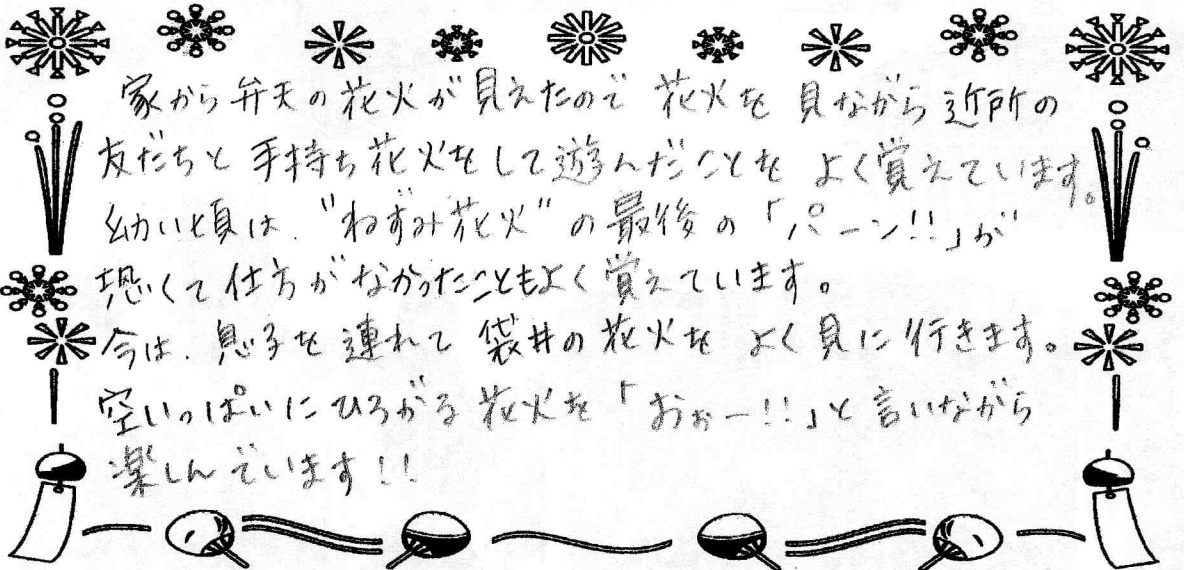 家から弁天の花火が見えたので 花火を 見ながら近所の
友だちと手持ち花火をして遊んだことを よく覚えています。
幼い頃は、"ねずみ花火"の最後の「パーン!!」が
恐くて仕方がなかったこともよく覚えています。
今は、息子を連れて 袋井の花火を よく見に行きます。
空いっぱいにひろがる花火を「おぉー!!」と言いながら
楽しんでいます!!